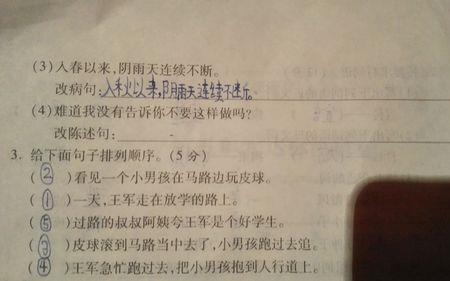 (3)入春以来,阴雨天连续不断。
改病句:入秋以来,阴雨天连续不断。
(4)难道我没有告诉你不要这样做吗?
改陈述句:
3. 给下面句子排列顺序。(5分)
(②)看见一个小男孩在马路边玩皮球。
(①)一天,王军走在放学的路上。
(⑤)过路的叔叔阿姨夸王军是个好学生。
(③)皮球滚到马路当中去了,小男孩跑过去追。
(④)王军急忙跑过去,把小男孩抱到人行道上。